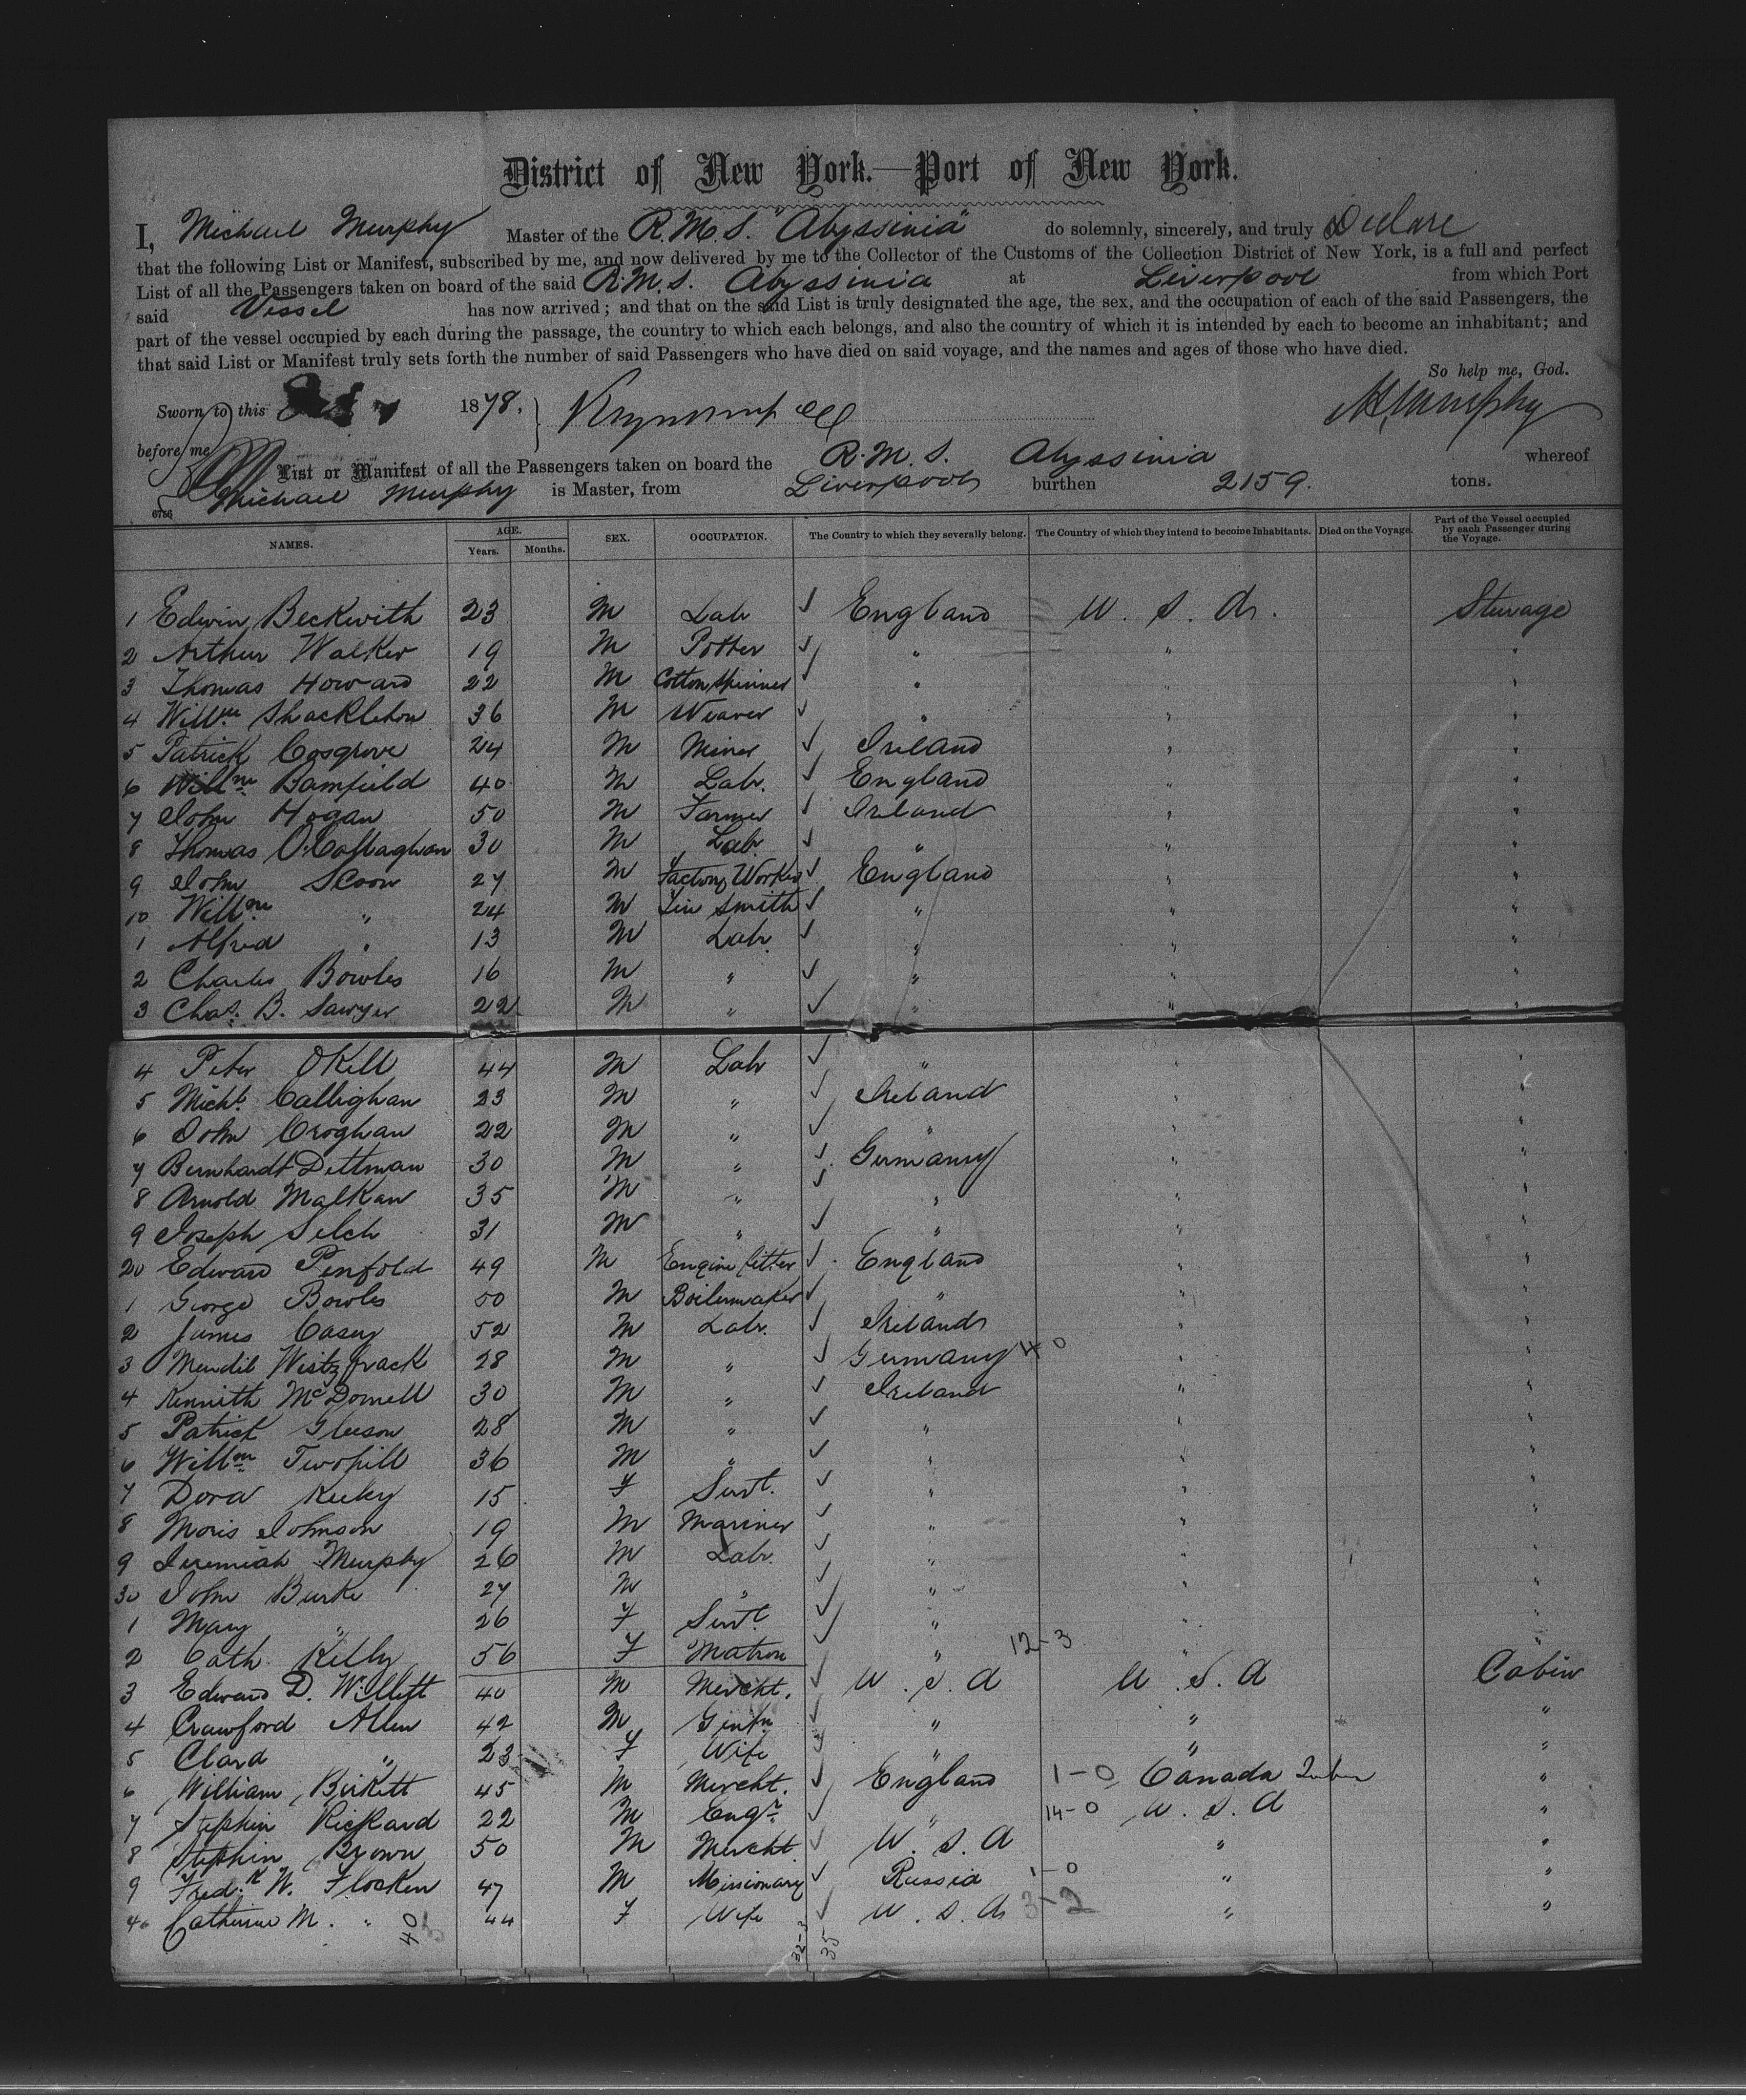 District of New York.—Port of New York.
I, Michael Murphy Master of the R.M.S. "Abyssinia" do solemnly, sincerely, and truly Declare
that the following List or Manifest, subscribed by me, and now delivered by me to the Collector of the Customs of the Collection District of New York, is a full and perfect
List of all the Passengers taken on board of the said R.M.S. Abyssinia at Liverpool from which Port
said Vessel has now arrived; and that on the said List is truly designated the age, the sex, and the occupation of each of the said Passengers, the
part of the vessel occupied by each during the passage, the country to which each belongs, and also the country of which it is intended by each to become an inhabitant; and
that said List or Manifest truly sets forth the number of said Passengers who have died on said voyage, and the names and ages of those who have died.
So help me, God.
Sworn to this 1878. M Murphy
before me
List or Manifest of all the Passengers taken on board the R.M.S. Abyssinia whereof
Michael Murphy is Master, from Liverpool burthen 2159. tons.
6756
NAMES. AGE. Years. Months. SEX. OCCUPATION. The Country to which they severally belong. The Country of which they intend to become Inhabitants. Died on the Voyage. Part of the Vessel occupied by each Passenger during the Voyage.
1 Edwin Beckwith 23 M Lab ✓ England U.S.A. Steerage
2 Arthur Walker 19 M Potter ✓ " " "
3 Thomas Howard 22 M Cotton Spinner ✓ " " "
4 Willm Shackleton 36 M Weaver ✓ " " "
5 Patrick Cosgrove 24 M Miner ✓ Ireland " "
6 Willm Bamfield 40 M Lab. ✓ England " "
7 John Hogan 50 M Farmer ✓ Ireland " "
8 Thomas O'Callaghan 30 M Lab ✓ " " "
9 John Scoon 27 M Factory Worker ✓ England " "
10 Willm " 24 M Tin Smith ✓ " " "
1 Alfred " 13 M Lab. ✓ " " "
2 Charles Bowles 16 M " ✓ " " "
3 Chas. B. Sawyer 22 M " ✓ " " "
4 Peter OKell 44 M Lab ✓ " " "
5 Michl. Callighan 23 M " ✓ Ireland " "
6 John Croghan 22 M " ✓ " " "
7 Bernhardt Dettman 30 M " ✓ Germany " "
8 Arnold Malkan 35 M " ✓ " " "
9 Joseph Selch 31 M " ✓ " " "
20 Edward Penfold 49 M Engine fitter ✓ England " "
1 George Bowles 50 M Boilermaker ✓ " " "
2 James Casey 52 M Lab. ✓ Ireland " "
3 Mendil 28 M " ✓ Germany 4 0 " "
4 Kenneth McDonnell 30 M " ✓ Ireland " "
5 Patrick Gleeson 28 M " ✓ " " "
6 Willm Twohill 36 M " ✓ " " "
7 Dora 15 F Servt. ✓ " " "
8 Moris Johnson 19 M Mariner ✓ " " "
9 Jeremiah Murphy 26 M Lab. ✓ " " "
30 John Burke 27 M " ✓ " " "
1 Mary " 26 F Servt. ✓ " " "
2 Cath. Kelly 56 F Matron ✓ " 12-3 " "
3 Edward D. Willett 40 M Mercht. ✓ U.S.A U.S.A Cabin
4 Crawford Allen 42 M Gentn ✓ " " "
5 Clara " 23 F Wife ✓ " " "
6 William Birkett 45 M Mercht. ✓ England 1-0 Canada "
7 Stephen Rickard 22 M Engr. ✓ " 14-0 U.S.A "
8 Stephen Brown 50 M Mercht ✓ U.S.A " "
9 Fredk. W. Flocken 47 M Missionary ✓ Russia 1-0 " "
40 Catherine M. " 44 F Wife ✓ U.S.A 3-2 " "
40 32-3 35